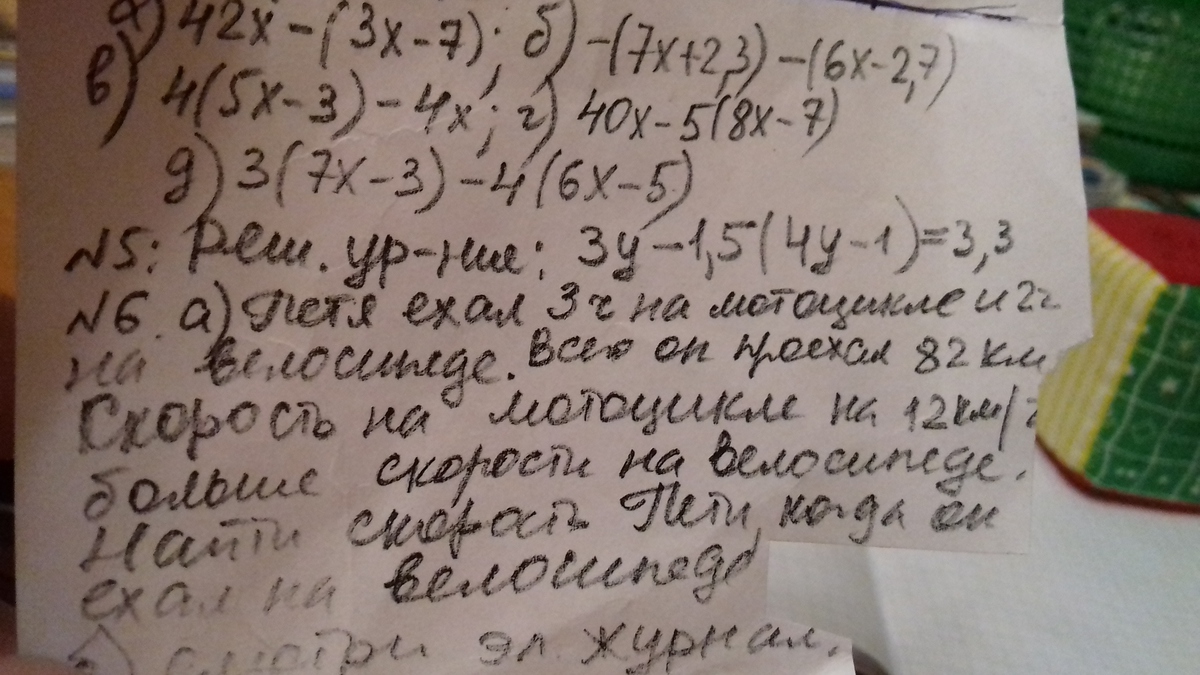 а) 42x-(3x-7); б) -(7x+2,3)-(6x-2,7)
в) 4(5x-3)-4x; г) 40x-5(8x-7)
д) 3(7x-3)-4(6x-5)
N5: Реш. ур-ния: 3y-1,5(4y-1)=3,3
N6. а) Петя ехал 3ч на мотоцикле и 2ч
на велосипеде. Всего он проехал 82 км
Скорость на мотоцикле на 12км/ч
больше скорости на велосипеде.
Найти скорость Пети, когда он
ехал на велосипеде
смотри эл. журнал.